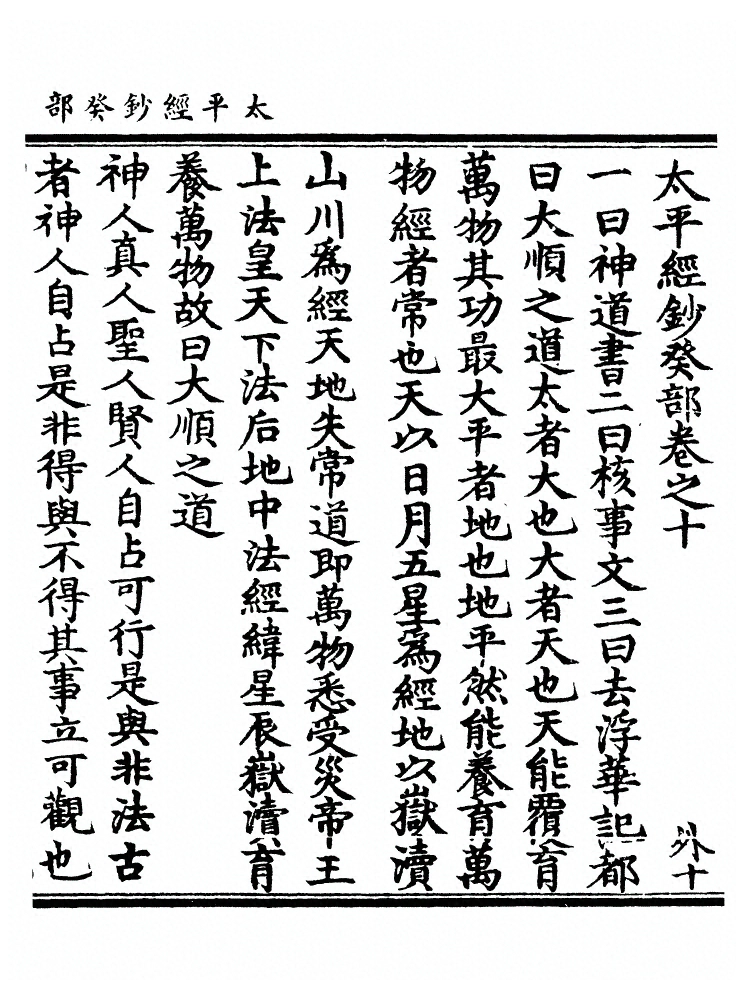 太平經鈔癸部
太平經鈔癸部卷之十 外十
一曰神道書二曰核事文三曰去浮華記都
曰大順之道太者大也大者天也天能覆育
萬物其功最大平者地也地平然能養育萬
物經者常也天以日月五星爲經地以嶽瀆
山川爲經天地失常道即萬物悉受災帝王
上法皇天下法后地中法經緯星辰嶽瀆育
養萬物故曰大順之道
神人真人聖人賢人自占可行是與非法古
者神人自占是非得與不得其事立可觀也